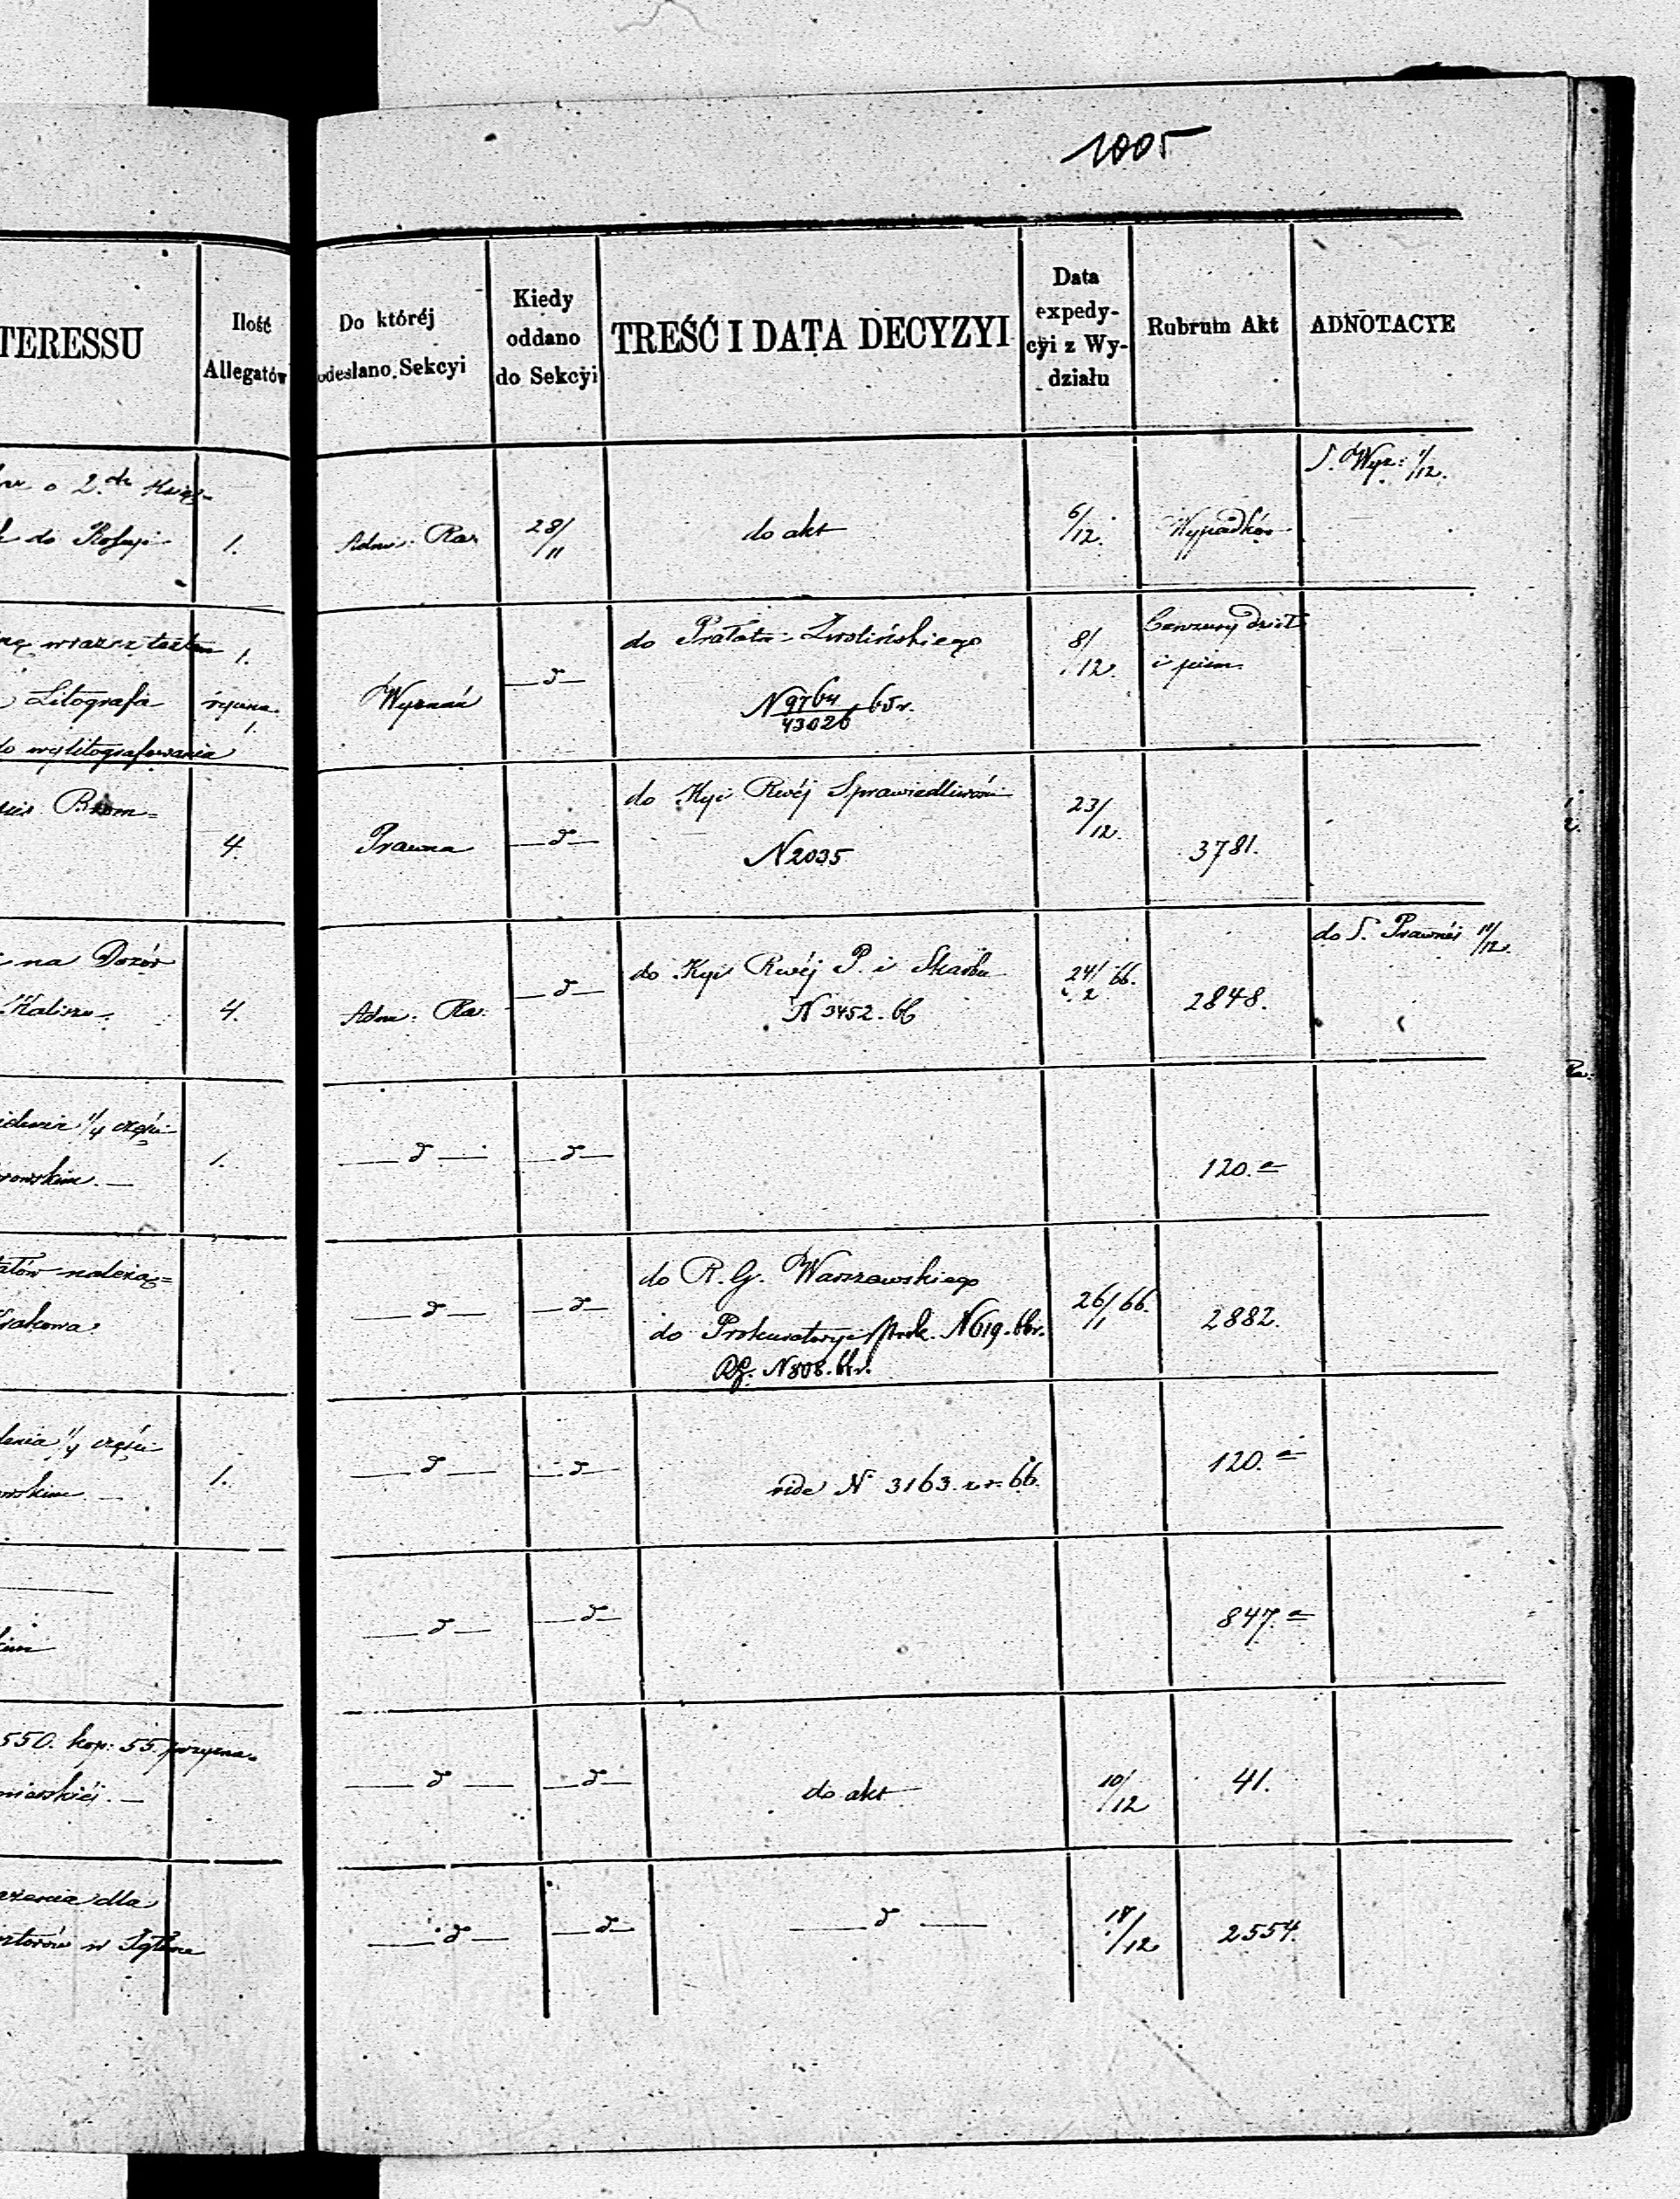 1005
TERESSU
Ilość
Allegatów
Do któréj
odesłano Sekcyi
Kiedy
oddano
do Sekcyi
TREŚĆ I DATA DECYZYI
Data
expedy-
cyi z Wy-
działu
Rubrum Akt
ADNOTACYE
o 2.ch Księ-
do Rossyi
1.
Adm:
28/11
do akt
6/12.
Wypadków
S. Wyz: 1/12.
1.
Litografa
rycina
1.
do wylitografowania
Wyznań
—d—
do Prałata Zwolińskiego
N 9764/43026 65 r.
8/12.
Cenzury dzieł
i pism
4.
Prawna
—d—
do Kyi Rwéj Sprawiedliwości
N 2035
23/12.
3781.
na Dozór
Kalisz
4.
Adm:
—d—
do Kyi Rwéj P. i Skarbu
N 3452. 66
24/2 66.
2848.
do S. Prawnéj 11/12.
1/4 części
1.
—d—
—d—
120. a
należą=
Krakowa
—d—
—d—
do R. G. Warszawskiego
do Prokuratoryi N 619. 66 r.
RG. N 808. 66 r.
26/1 66.
2882.
1/4 części
1.
—d—
—d—
vide N 3163. z r. 66.
120. a
—d—
—d—
847. a
550. kop: 55. przyzna-
—d—
—d—
do akt
10/12
41.
dla
w
—d—
—d—
—d—
2554.